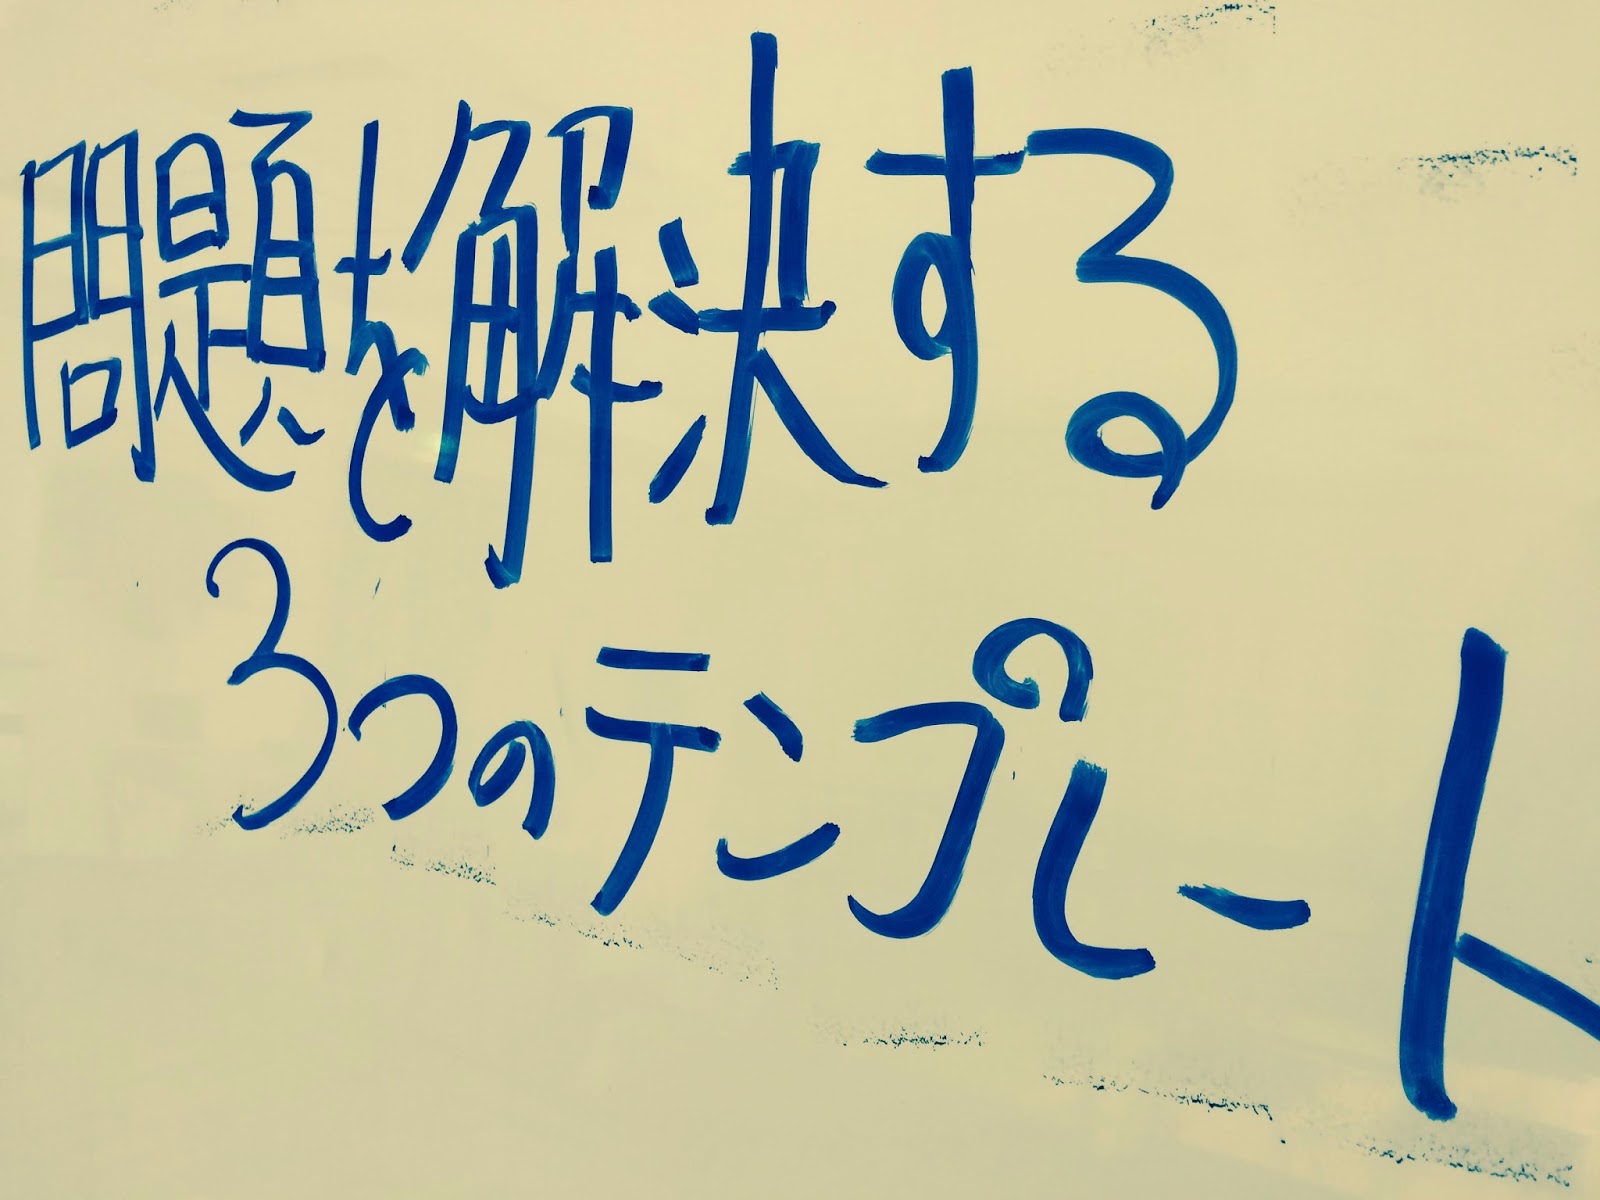 問題を解決する
3つのテンプレート